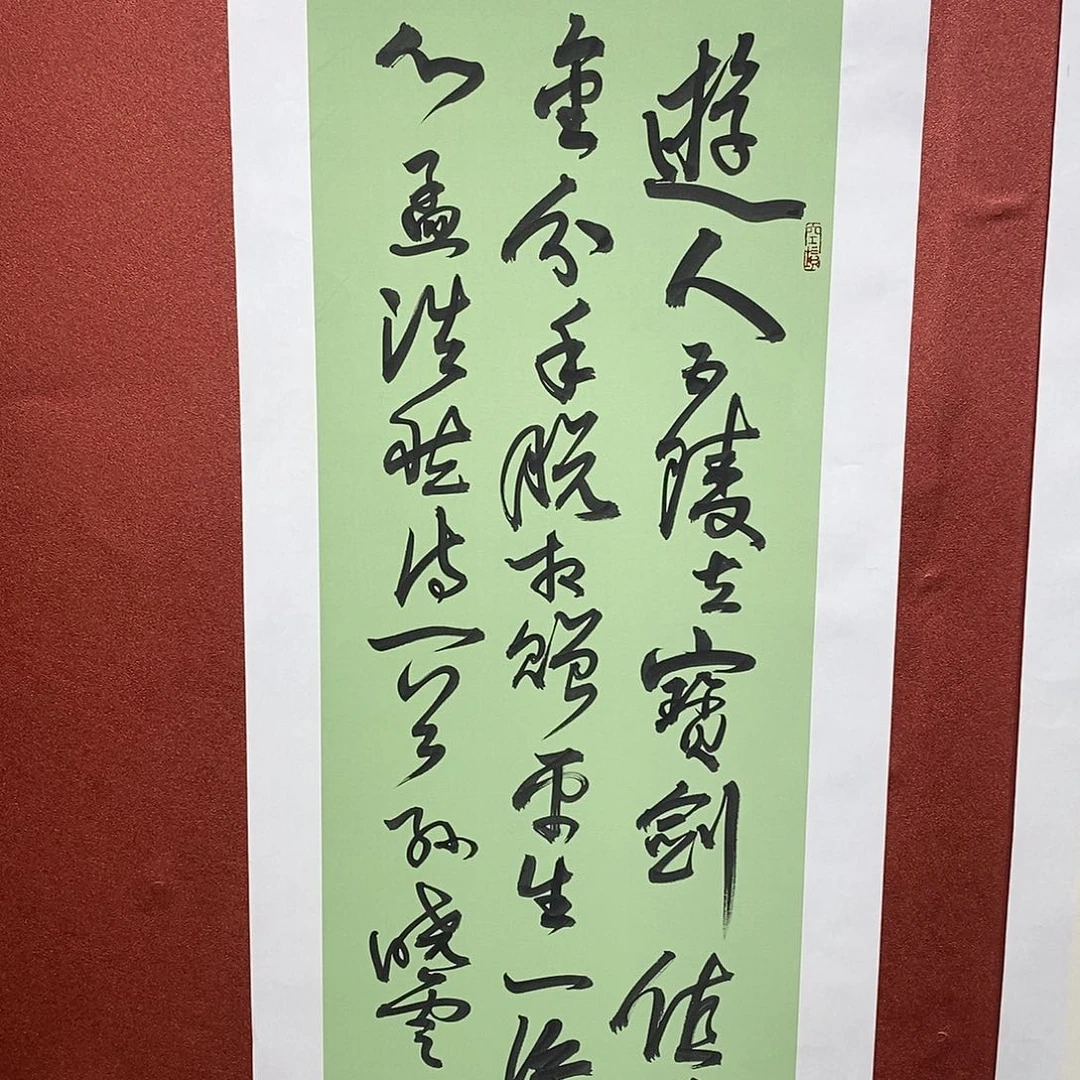 遊人五陵去寶劍值
金分手脫相贈平生一
心孟浩然詩一首孫曉雲